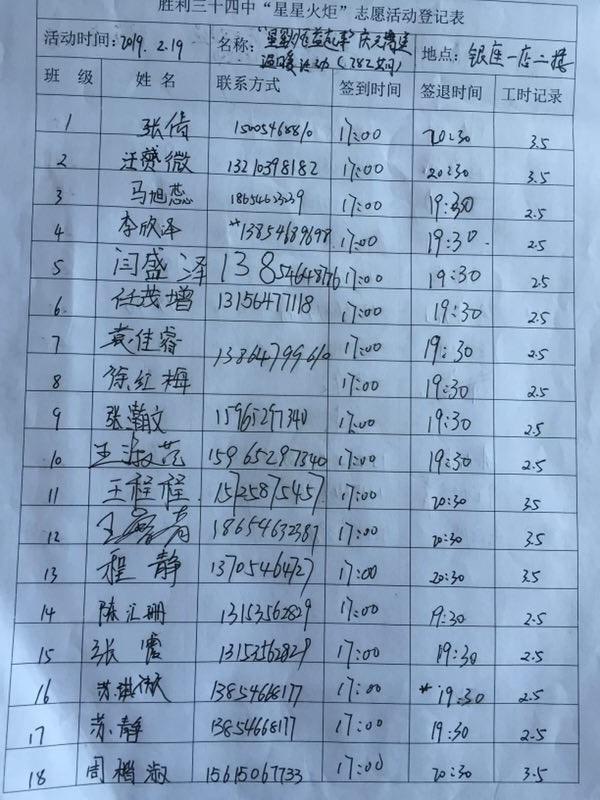 胜利三十四中“星星火炬”志愿活动登记表
活动时间: 2019.2.19 名称: 庆元宵 地点: 银座一店二楼
温暖活动
班 级 姓 名 联系方式 签到时间 签退时间 工时记录
1 张倩 17:00 20:30 3.5
2 汪赟微 13210398182 17:00 20:30 3.5
3 马旭蕊 17:00 19:30 2.5
4 李欣泽 *13854689698 17:00 19:30. 2.5
5 闫盛泽 13854648176 17:00 19:30 2.5
6 任茂增 13156477118 17:00 19:30 2.5
7 袁佳睿 13864799610 17:00 19:30 2.5
8 徐红梅 17:00 19:30 2.5
9 张瀚文 15965297340 17:00 19:30 2.5
10 王淑范 15965297340 17:00 19:30 2.5
11 王程程 17:00 20:30 3.5
12 18654632387 17:00 20:30 3.5
13 程静 17:00 20:30 3.5
14 陈汇珊 13153562829 17:00 19:30 2.5
15 张 13153562829 17:00 19:30 2.5
16 苏琪微 13854668177 17:00 *19:30 2.5
17 苏静 13854668177 17:00 19:30 2.5
18 周 淑 15615067733 17:00 20:30 3.5